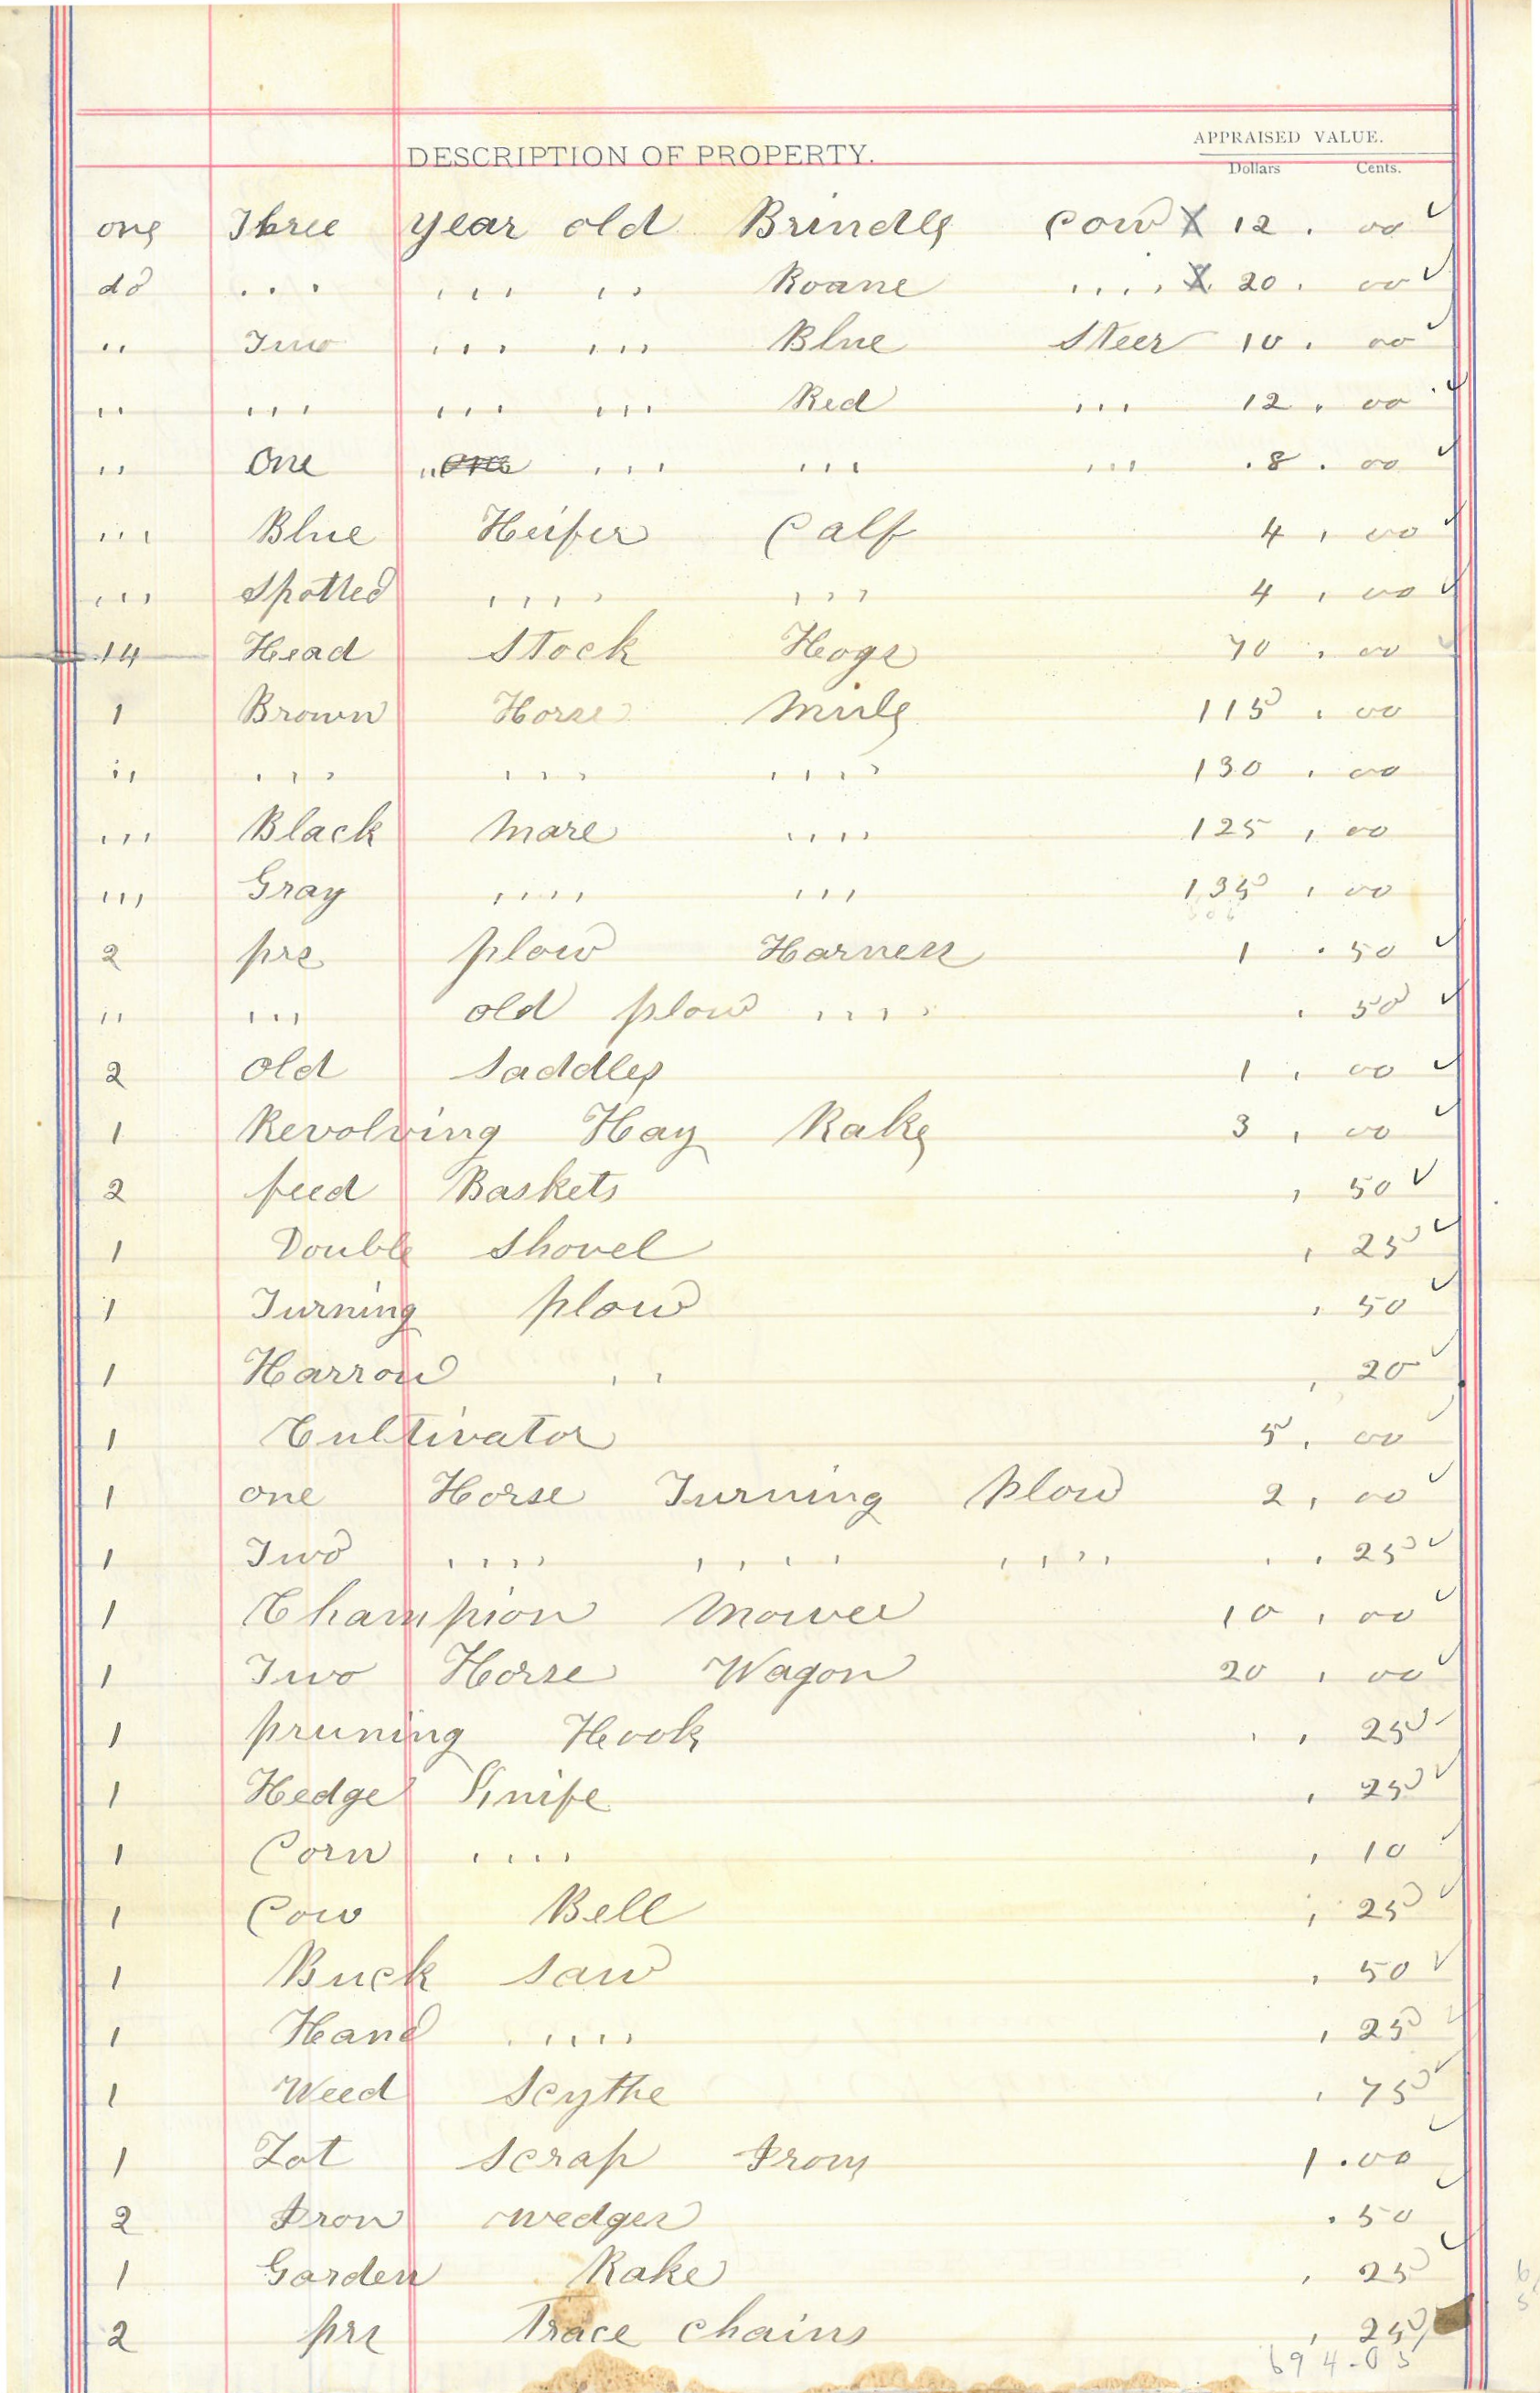 DESCRIPTION OF PROPERTY. APPRAISED VALUE.
Dollars Cents.
one Three year old Brindle Cow X 12 . 00 ✓
do ... ,,, ,, Roane ,,,, X 20 . 00 ✓
,, Two ,,, ,,, Blue Steer 10 . 00 ✓
,, ,,, ,,, ,,, Red ,,, 12 . 00 ✓
,, One ,, one ,,, ,,, ,,, . 8 . 00 ✓
,,, Blue Heifer Calf 4 , 00 ✓
,,, Spotted ,,,, ,,, 4 , 00 ✓
14 Head Stock Hogs 70 . 00 ✓
1 Brown Horse Mule 115 . 00
,, ,,, ,,, ,,,, 130 , 00
,,, Black Mare ,,,, 125 , 00
,,, Gray ,,,, ,,, 135 , 00
2 prs plow Harness 1 . 50 ✓
,, ,,, old plow ,,,, . 50 ✓
2 old Saddles 1 , 00 ✓
1 Revolving Hay Rake 3 , 00 ✓
2 feed Baskets , 50 ✓
1 Double Shovel , 25 ✓
1 Turning plow , 50 ✓
1 Harrow ,, , 20 ✓
1 Cultivator 5 . 00 ✓
1 one Horse Turning plow 2 , 00 ✓
1 Two ,,,, ,,,, ,,,, , , 25 ✓
1 Champion Mower 10 , 00 ✓
1 Two Horse Wagon 20 , 00 ✓
1 pruning Hook , , 25 ✓
1 Hedge Knife , 25 ✓
1 Corn ,,,, , 10 ✓
1 Cow Bell , 25 ✓
1 Buck Saw , 50 ✓
1 Hand ,,,, , 25 ✓
1 Weed Scythe , 75 ✓
1 Lot Scrap Iron 1 . 00 ✓
2 Iron wedges . 50 ✓
1 Garden Rake , 25 ✓
2 prs Trace chains , 25 ✓
694-05